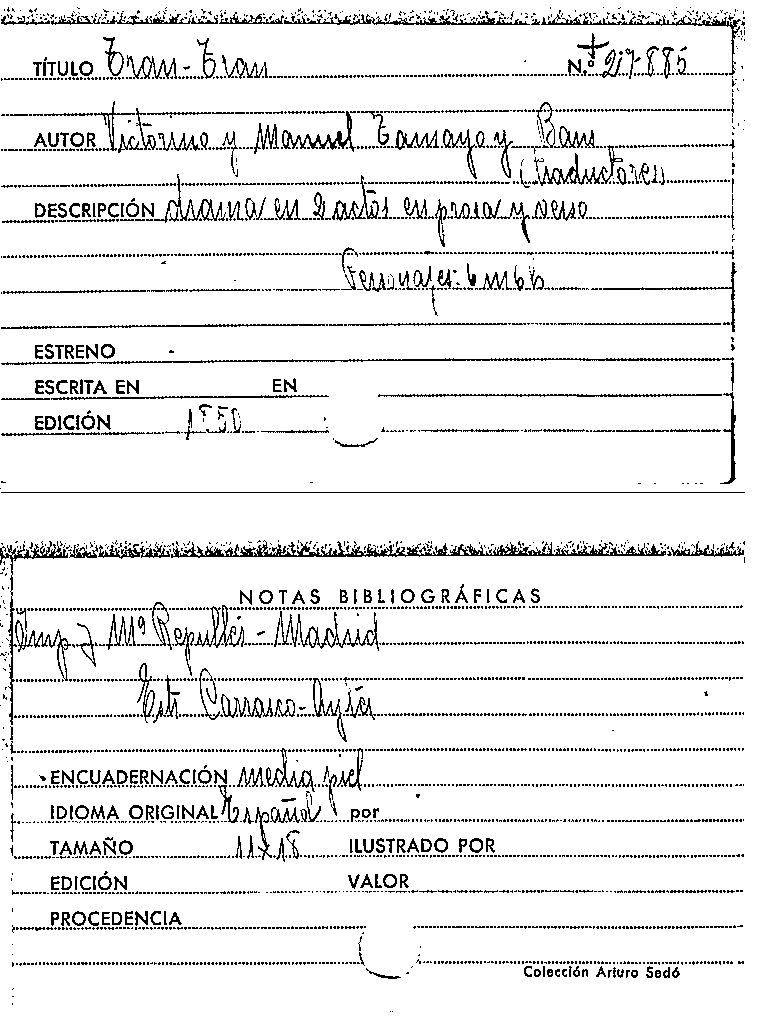 TÍTULO Tran-Tran N.º 217-885
AUTOR Victorino y Manuel Tamayo y Baus
(traductores)
DESCRIPCIÓN drama en 2 actos en prosa y verso
Personajes: 6 m 6 h
ESTRENO -
ESCRITA EN EN
EDICIÓN 1850
NOTAS BIBLIOGRÁFICAS
Imp. J Mª Repullés - Madrid
Enc. Carrasco-
ENCUADERNACIÓN media piel
IDIOMA ORIGINAL Español por
TAMAÑO 11x18 ILUSTRADO POR
EDICIÓN VALOR
PROCEDENCIA
Colección Arturo Sedó